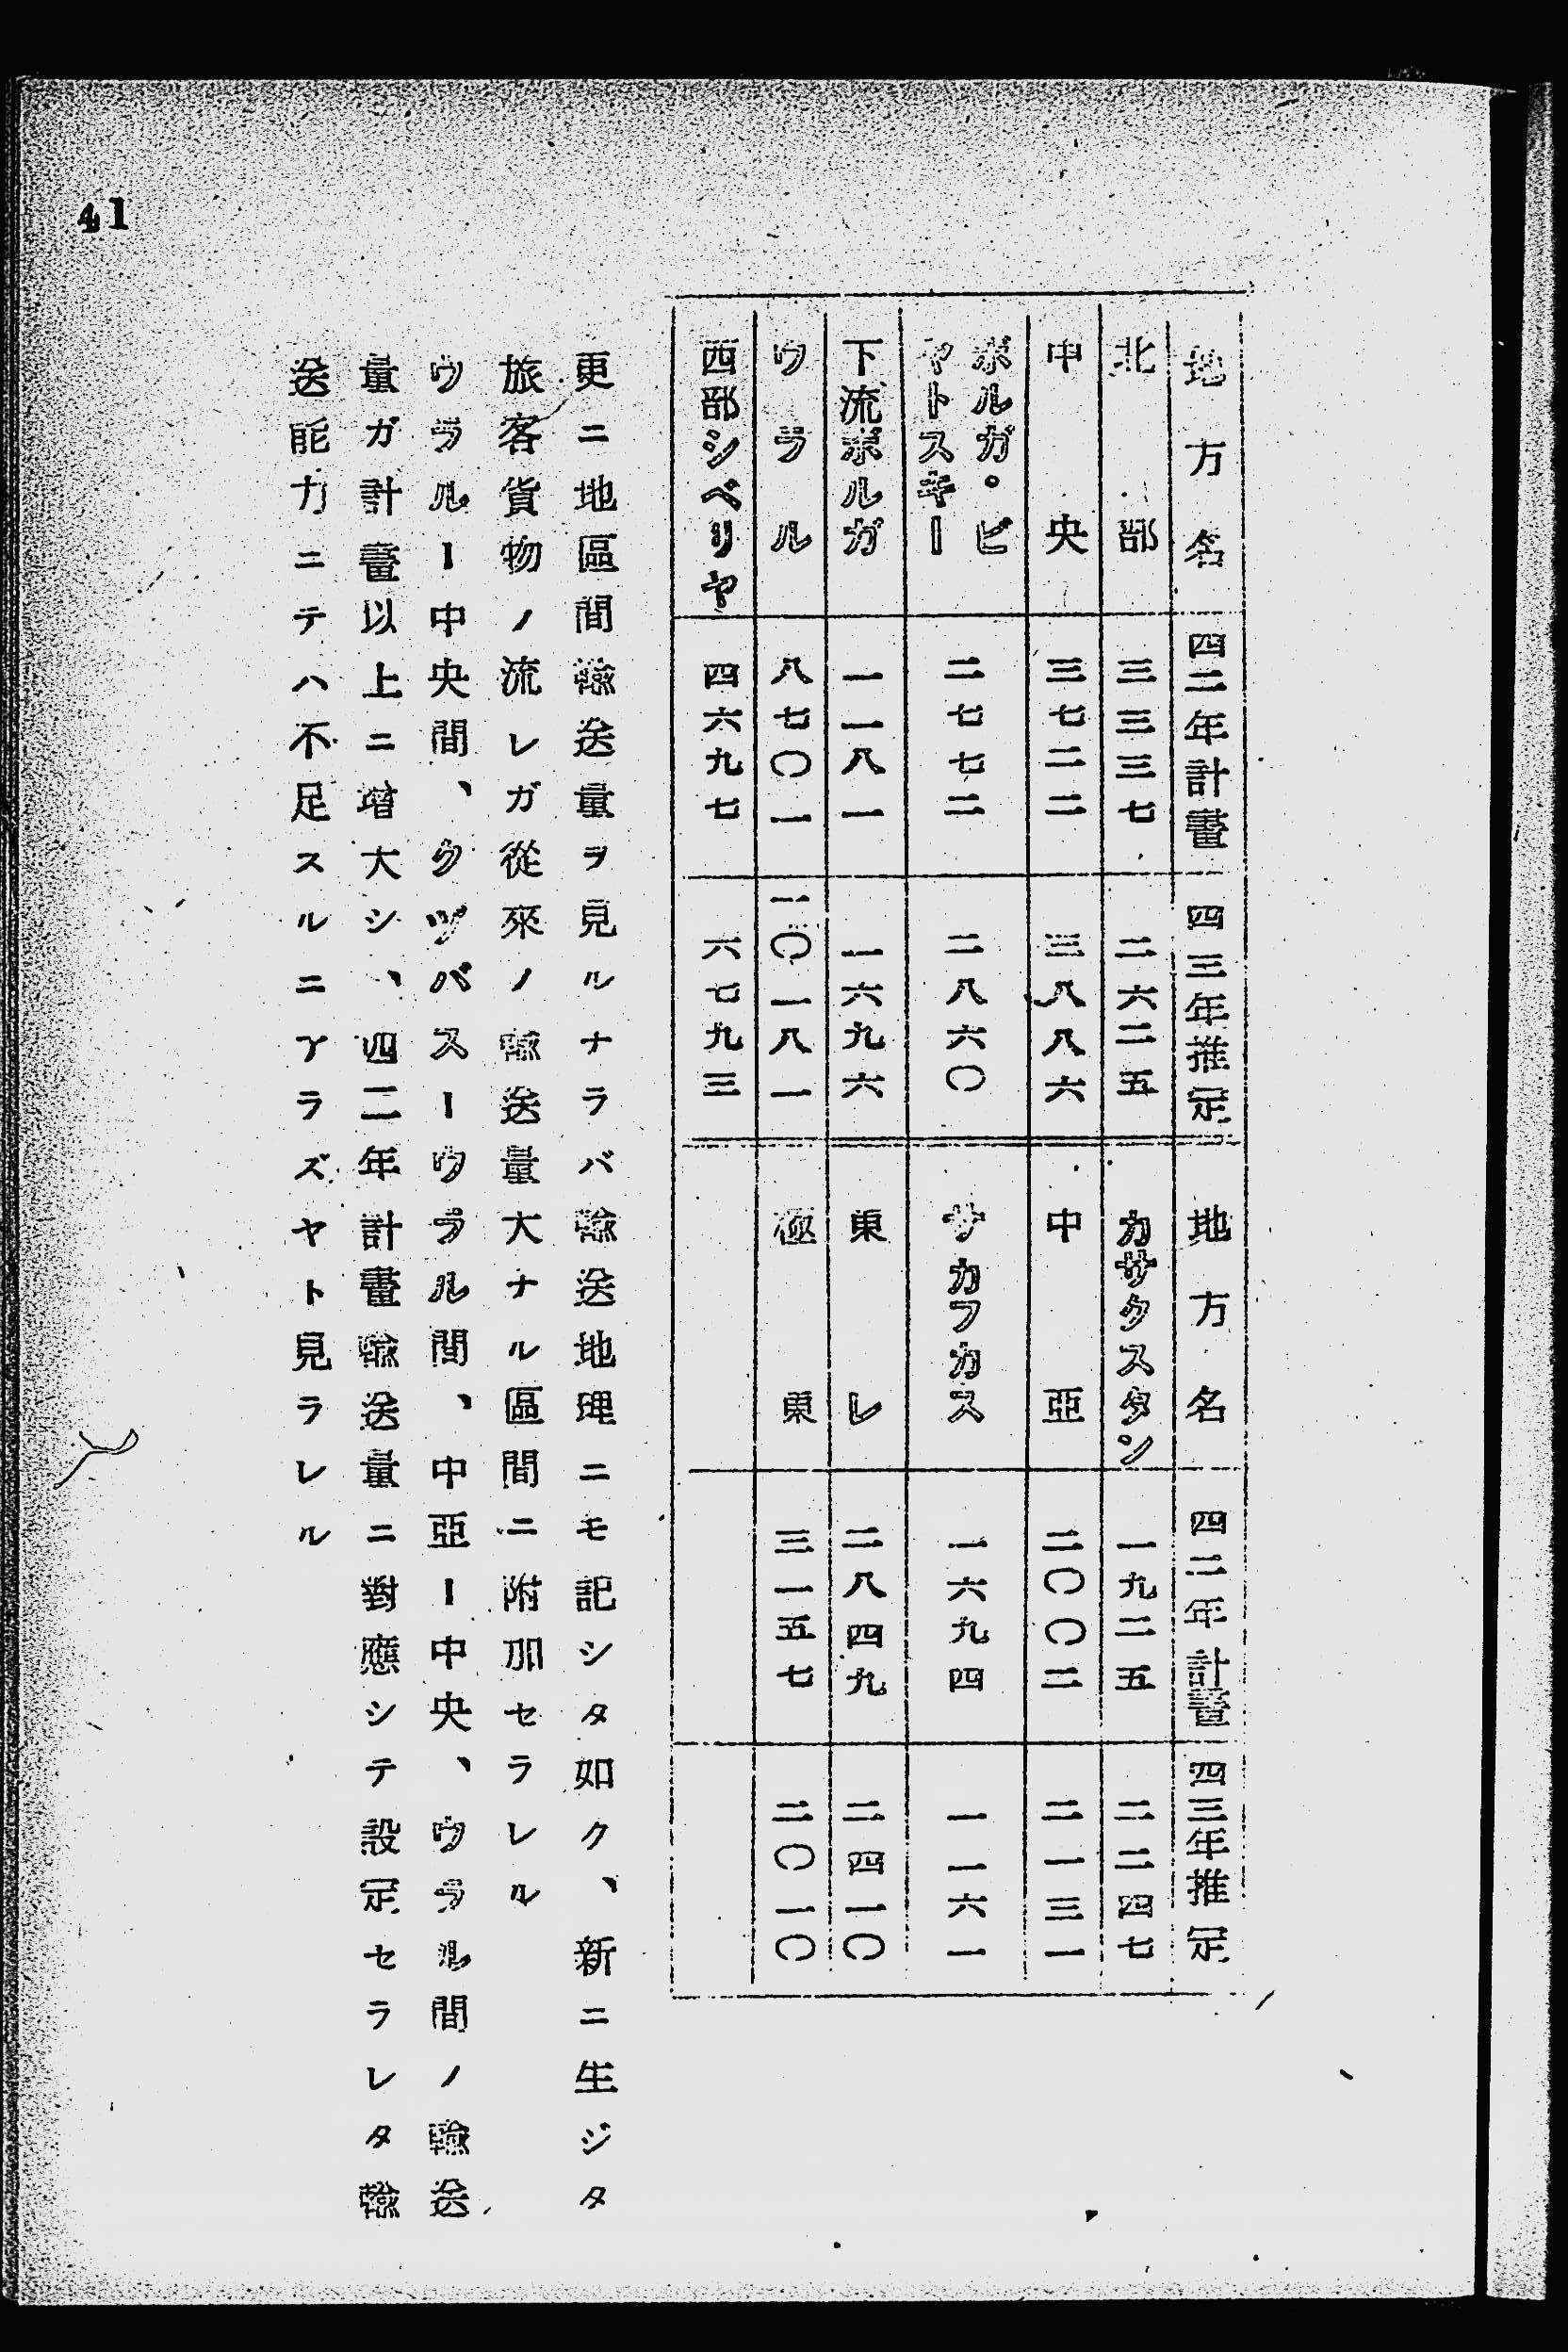 地方名 四二年計畫 四三年推定 地方名 四二年計畫 四三年推定
北部 三三三七 二六二五 カサクスタン 一九二五 二二四七
中央 三七二二 三八八六 中亞 二〇〇二 二一三一
ボルガ・ビヤトスキー 二七七二 二八六〇 サカフカス 一六九四 一一六一
下流ボルガ 一一八一 一六九六 東レ 二八四九 二四一〇
ウラル 八七〇一 一〇一八一 極東 三一五七 二〇一〇
西部シベリヤ 四六九七 六七九三
更ニ地區間輸送量ヲ見ルナラバ輸送地理ニモ記シタ如ク、新ニ生ジタ
旅客貨物ノ流レガ從來ノ輸送量大ナル區間ニ附加セラレル
ウラルー中央間、クヅバスーウラル間、中亞ー中央、ウラル間ノ輸送
量ガ計畫以上ニ增大シ、四二年計畫輸送量ニ對應シテ設定セラレタ輸
送能力ニテハ不足スルニアラズヤト見ラレル
41